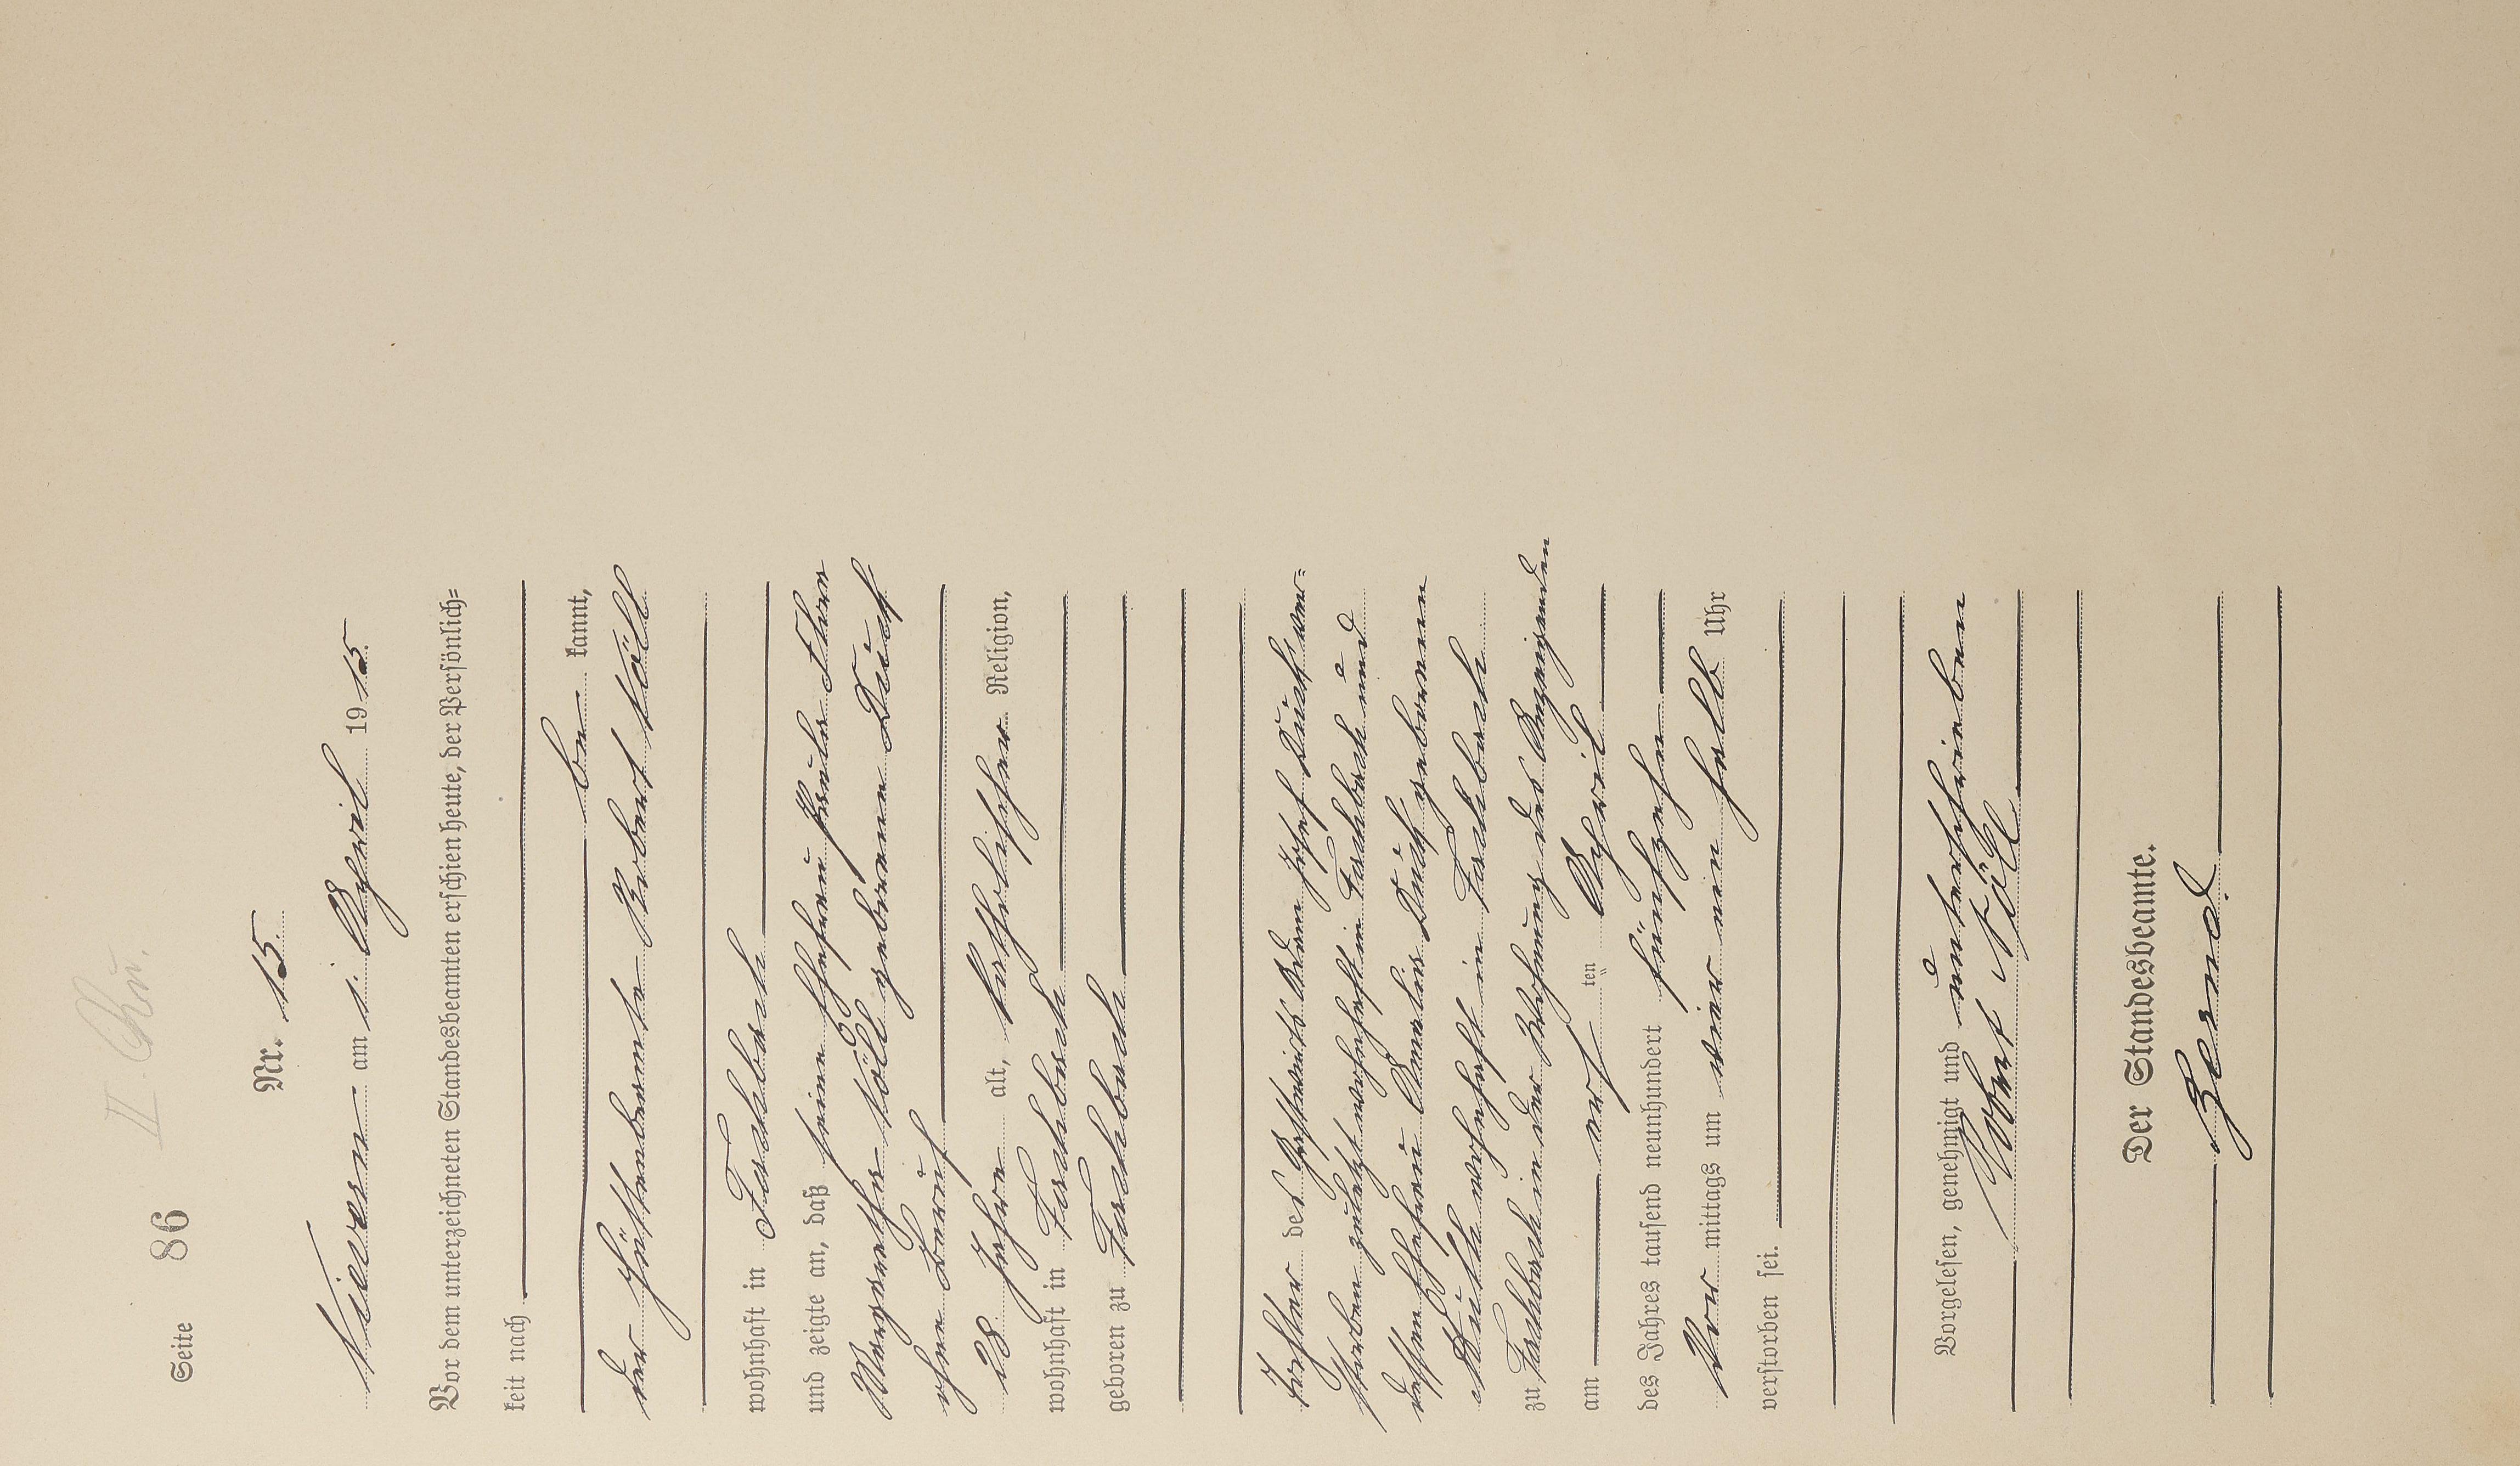 Seite 86
Nr. 15.
Nievern am 1. April 1915.
Vor dem unterzeichneten Standesbeamten erschien heute, der Persönlich=
keit nach
be kannt,
der Hüttenbeamte Robert Nöll
wohnhaft in Fachbach
und zeigte an, daß seine Ehefrau Paula
Margaretha Nöll geborene
ohne Beruf
28 Jahre alt, katholischer Religion,
wohnhaft in Fachbach
geboren zu Fachbach
Tochter des Gastwirts Adam Josef ver=
storben zuletzt wohnhaft in Fachbach und
dessen Ehefrau Amalie geborenen
wohnhaft in Fachbach
zu Fachbach in der Wohnung des Anzeigenden
am ten April
des Jahres tausend neunhundert fünfzehn
Vor mittags um vier ein halb Uhr
verstorben sei.
Vorgelesen, genehmigt und unterschrieben
Robert Nöll
Der Standesbeamte.